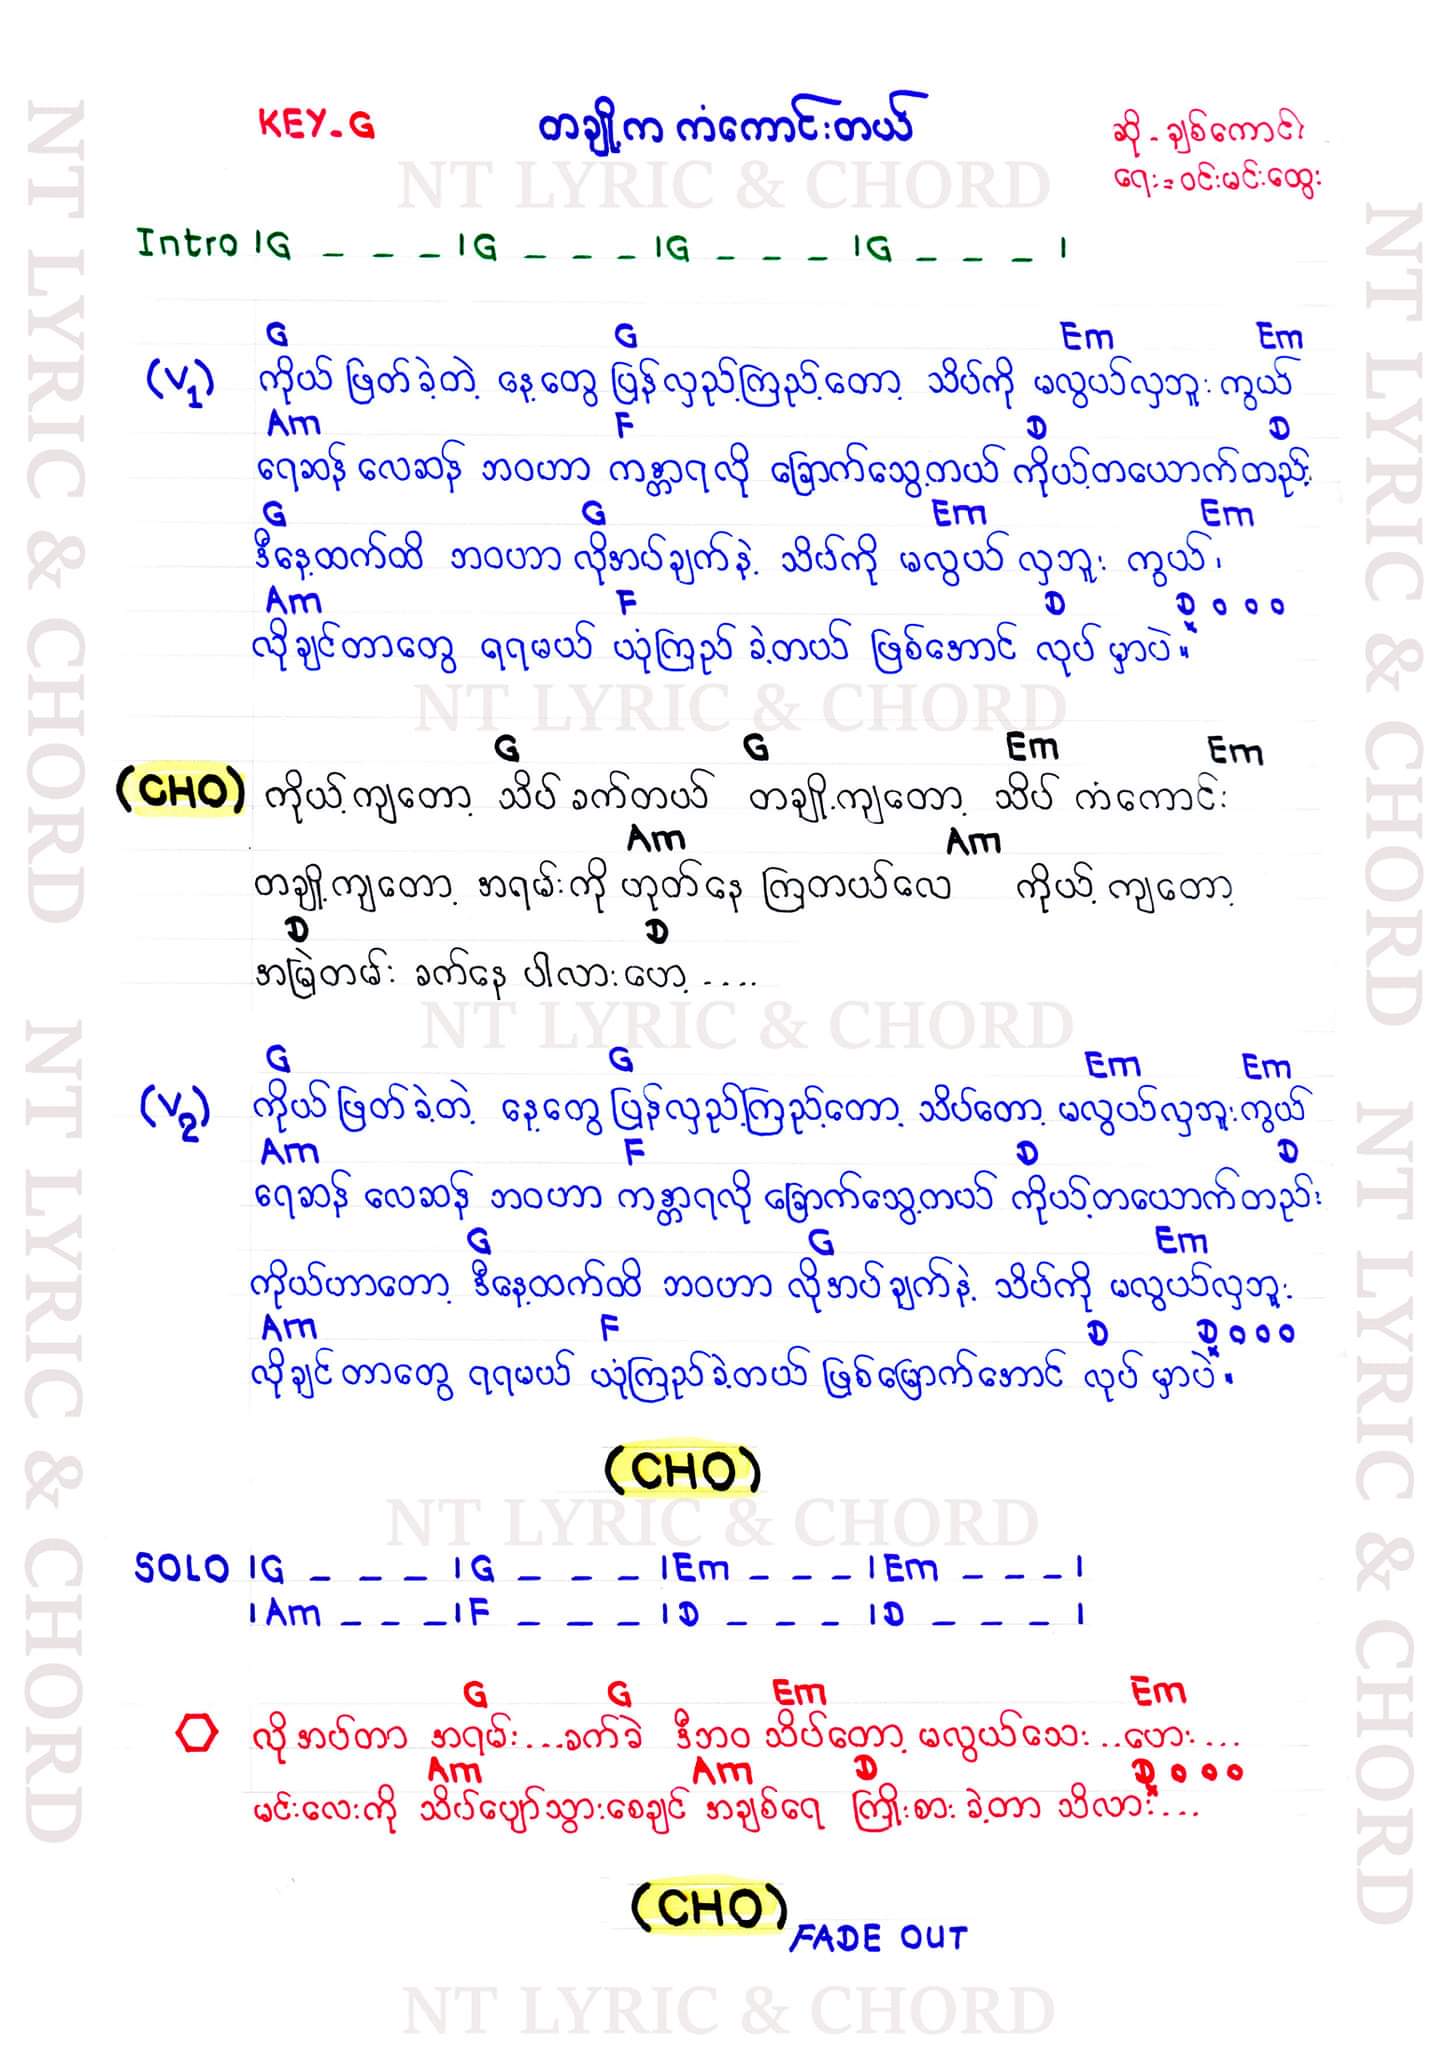 KEY-G
တချို့က ကံကောင်းတယ်
ဆို - ချစ်ကောင်း
ရေး = ဝင်းမင်းထွေး
NT LYRIC & CHORD
Intro |G _ _ _ |G _ _ _ |G _ _ _ |G _ _ _ |
G G Em Em
(V1) ကိုယ် ဖြတ်ခဲ့တဲ့ နေ့တွေ ပြန်လှည့်ကြည့်တော့ သိပ်ကို မလွယ်လှဘူး ကွယ်
Am F D D
ရေဆန် လေဆန် ဘဝဟာ ကန္တာရလို ခြောက်သွေ့တယ် ကိုယ့်တယောက်တည်း
G G Em Em
ဒီနေ့ထက်ထိ ဘဝဟာ လိုအပ်ချက်နဲ့ သိပ်ကို မလွယ် လှဘူး ကွယ်၊
Am F D D o o o
လိုချင်တာတွေ ရရမယ် ယုံကြည် ခဲ့တယ် ဖြစ်အောင် လုပ် မှာပဲ။
NT LYRIC & CHORD
G G Em Em
(CHO) ကိုယ့်ကျတော့ သိပ် ခက်တယ် တချို့ကျတော့ သိပ် ကံကောင်း
Am Am
တချို့ကျတော့ အရမ်းကို ဟုတ်နေ ကြတယ်လေ ကိုယ့် ကျတော့
D D
အမြဲတမ်း ခက်နေ ပါလားဟေ့ ....
NT LYRIC & CHORD
G G Em Em
(V2) ကိုယ် ဖြတ်ခဲ့တဲ့ နေ့တွေ ပြန်လှည့်ကြည့်တော့ သိပ်တော့ မလွယ်လှဘူးကွယ်
Am F D D
ရေဆန် လေဆန် ဘဝဟာ ကန္တာရလို ခြောက်သွေ့တယ် ကိုယ့်တယောက်တည်း
G G Em
ကိုယ်ဟာတော့ ဒီနေ့ထက်ထိ ဘဝဟာ လိုအပ်ချက်နဲ့ သိပ်ကို မလွယ်လှဘူး
Am F D D o o o
လိုချင်တာတွေ ရရမယ် ယုံကြည်ခဲ့တယ် ဖြစ်မြောက်အောင် လုပ် မှာပဲ။
(CHO)
NT LYRIC & CHORD
SOLO |G _ _ _ |G _ _ _ |Em _ _ _ |Em _ _ _ |
|Am _ _ _ |F _ _ _ |D _ _ _ |D _ _ _ |
G G Em Em
လိုအပ်တာ အရမ်း...ခက်ခဲ ဒီဘဝ သိပ်တော့ မလွယ်သေး..ဟေး...
Am Am D D o o o
မင်းလေးကို သိပ်ပျော်သွားစေချင် အချစ်ရေ ကြိုးစား ခဲ့တာ သိလား...
(CHO)
FADE OUT
NT LYRIC & CHORD
NT LYRIC & CHORD
NT LYRIC & CHORD
NT LYRIC & CHORD
NT LYRIC & CHORD